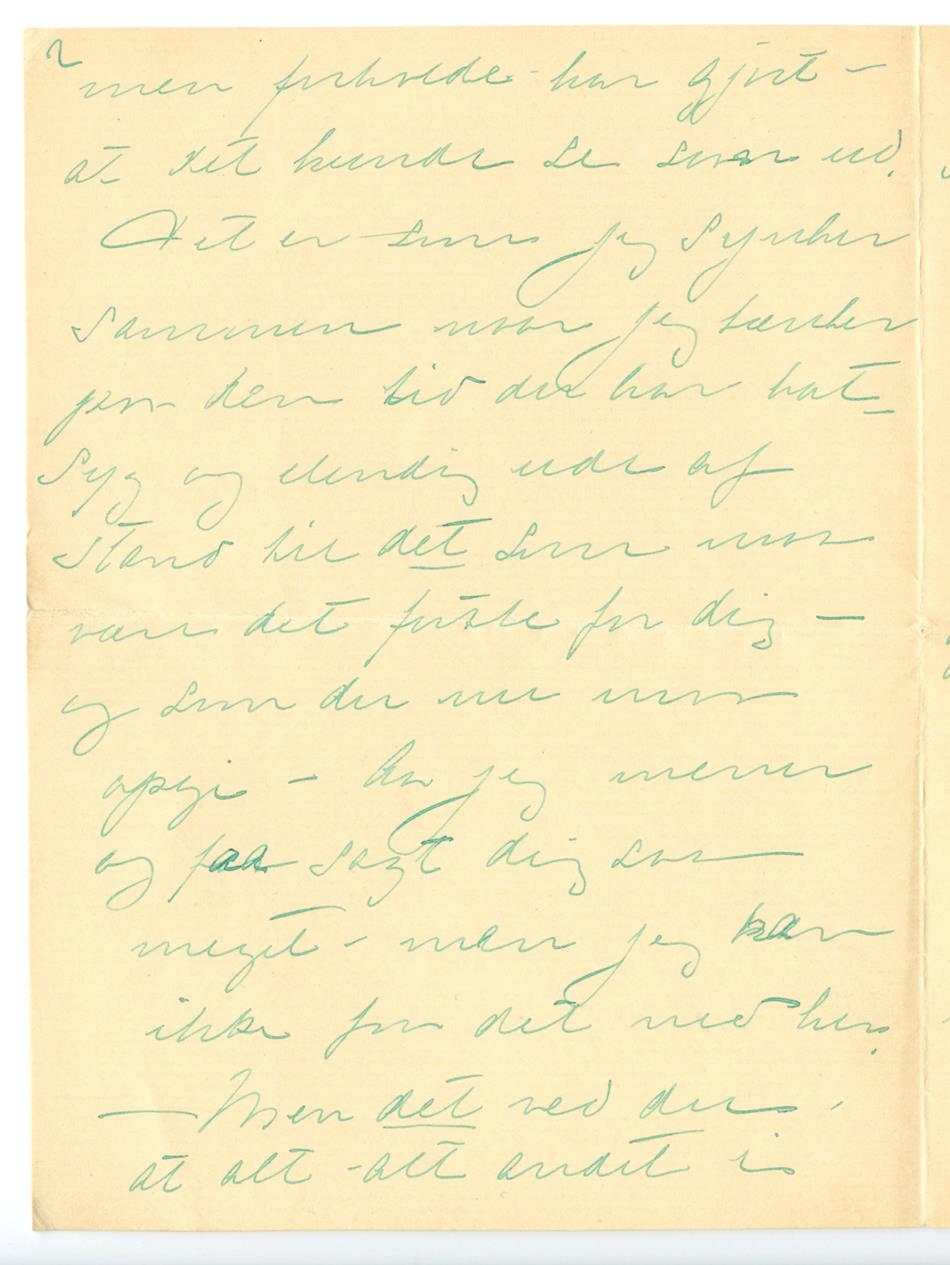 2
men forholde har gjort –
at det kunde se saan ud.
Det er som jeg synker
sammen naar jeg tænker
paa den tid du har hat –
syg og elendig ude af
stand til det som maa
være det første for dig –
og som du nu maa
opgi – Aa jeg mener
og faa sagt dig saa
meget – men jeg kan
ikke faa det ned her.
– Men det ved du –
at alt – alt andet i